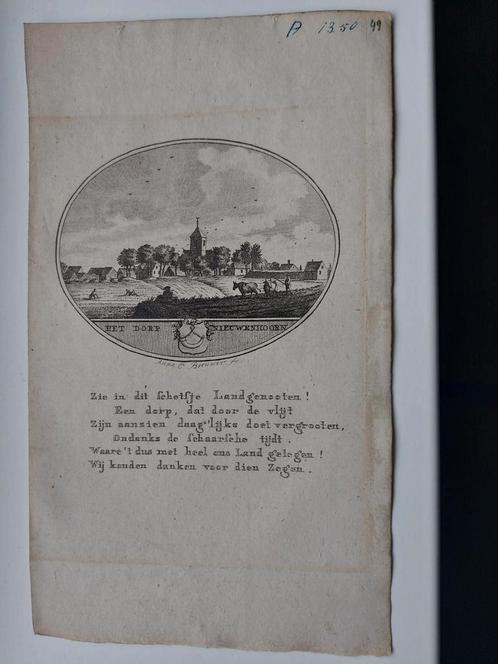 P 13.50 49
HET DORP NIEUWENHOORN
Anna C. Brouwer fec.
Zie in dit schetsje Landgenooten!
Een dorp, dat door de vlijt
Zijn aanzien daag'lijks doet vergrooten,
Ondanks de schaarsche tijdt.
Waare't dus met heel ons Land gelegen!
Wij konden danken voor dien Zegen.